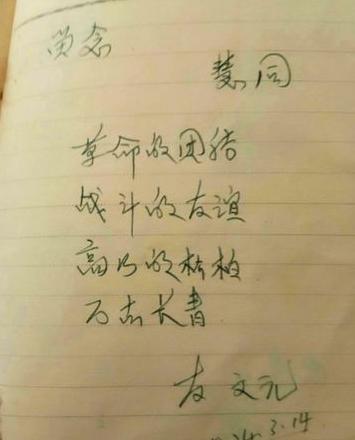 留念
慧同
革命的团结
战斗的友谊
高山的松柏
万古长青
友 文元
3.14